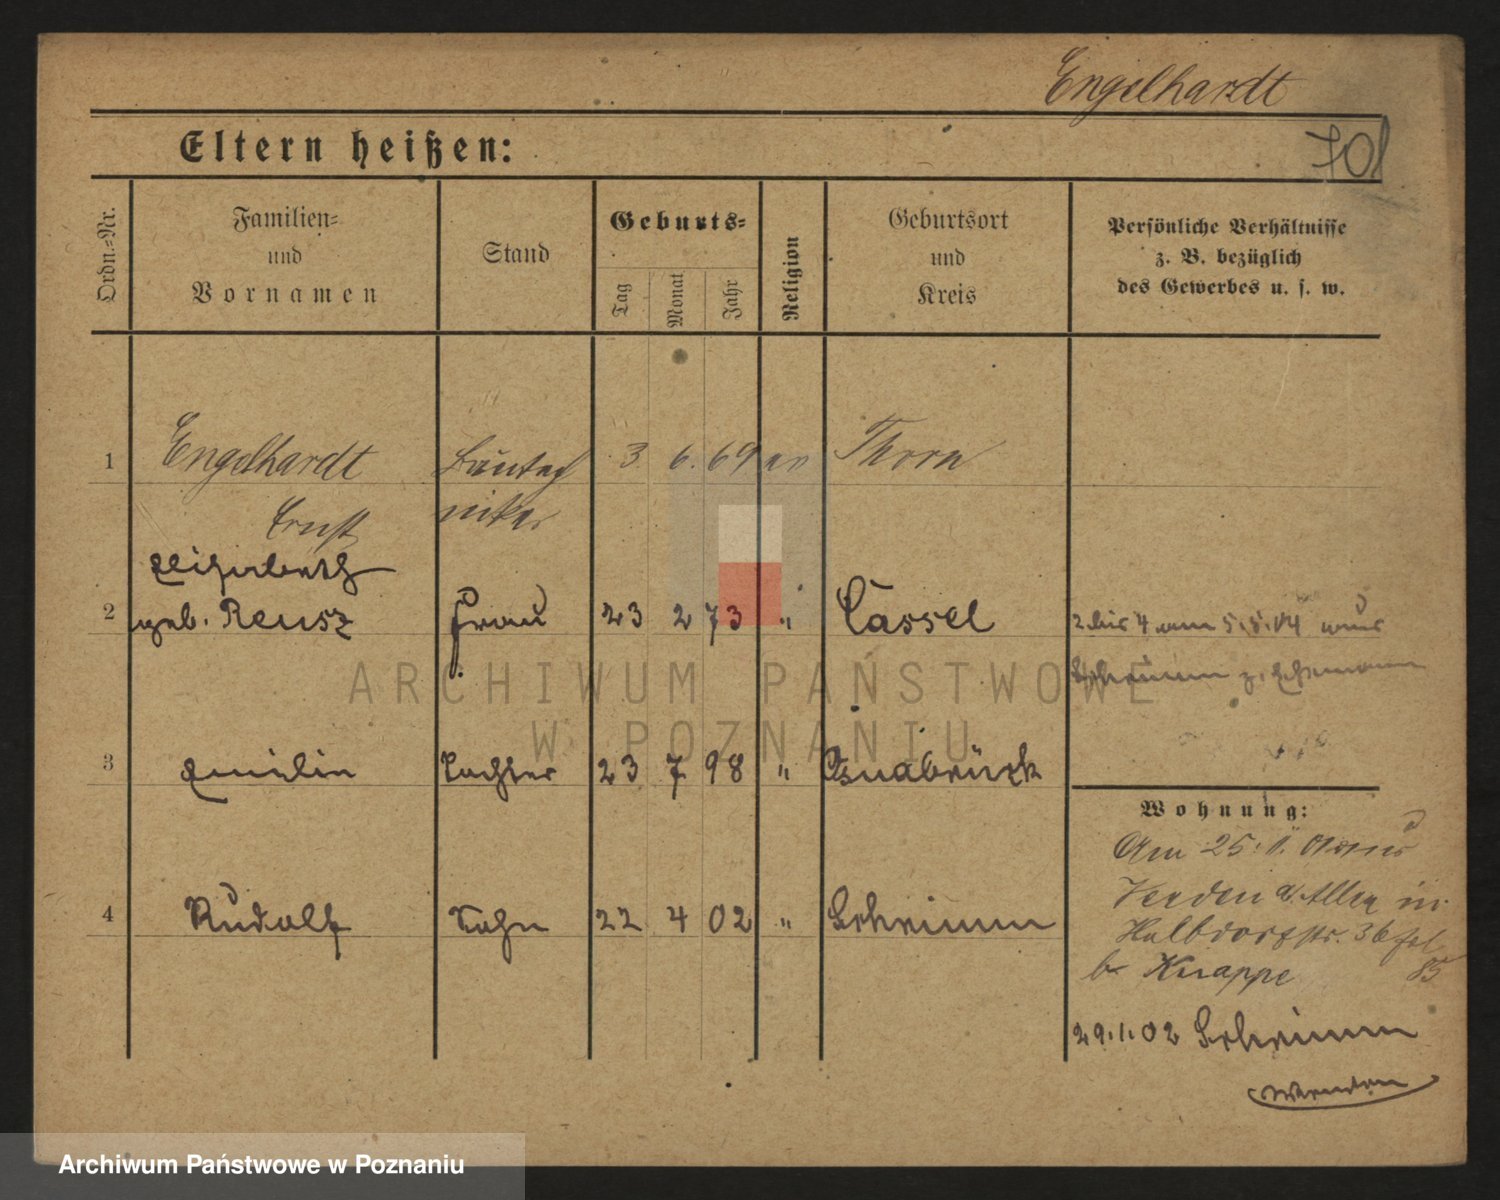 Engelhardt
701
Eltern heißen:
Ordn.=Nr.
Familien=
und
Vornamen
Stand
Geburts=
Tag
Monat
Jahr
Religion
Geburtsort
und
Kreis
Persönliche Verhältnisse
z. B. bezüglich
des Gewerbes u. s. w.
1 Engelhardt Bautech 3 6. 69 ev Thorn
Ernst niker
Elisabeth
2 geb. Reusz Frau 23 2 73 " Cassel 2 bis 4 am 5.5.04 aus
Schrimm z.
3 Emilie Tochter 23 7 98 " Osnabrück
Wohnung:
Am 25. 1. 01 aus
Verden a. Aller in
4 Rudolf Sohn 22 4 02 " Schrimm
Halbdorfstr. 36
b. Knappe 85
29.1.02 Schrimm
ARCHIWUM PAŃSTWOWE
W POZNANIU
Archiwum Państwowe w Poznaniu